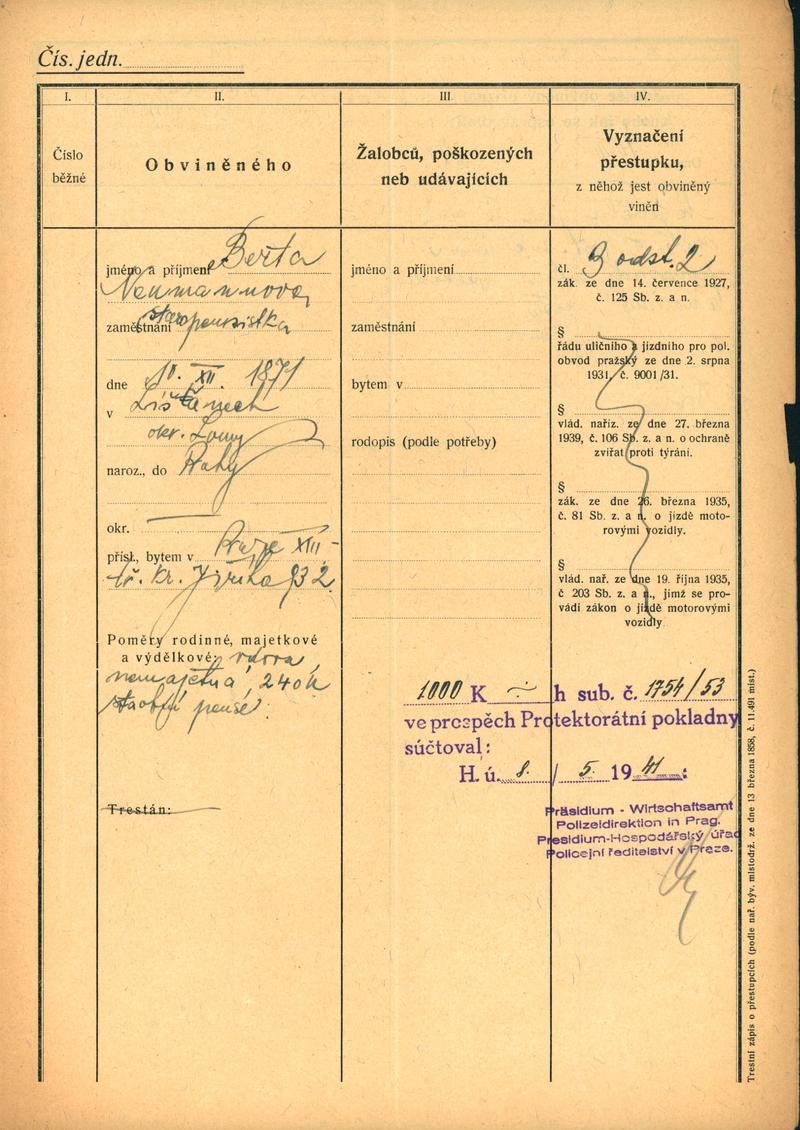 Čís. jedn.
I.
II.
III.
IV.
Číslo
běžné
Obviněného
Žalobců, poškozených
neb udávajících
Vyznačení
přestupku,
z něhož jest obviněný
viněn
jméno a příjmení Berta
Neumannova,
zaměstnání staropensistka
dne 10. XII. 1871
v Lišťanech
okr. Louny
naroz., do Prahy
okr.
přísl., bytem v Praze XII -
tř. kr. Jiřího 32
Poměry rodinné, majetkové
a výdělkové: vdova,
nemajetná, 240 K
starobní pense.
Trestán:
jméno a příjmení
zaměstnání
bytem v
rodopis (podle potřeby)
čl. 3 odst. 2
zák. ze dne 14. července 1927,
č. 125 Sb. z. a n.
§
řádu uličního a jízdního pro pol.
obvod pražský ze dne 2. srpna
1931, č. 9001/31.
§
vlád. naříz. ze dne 27. března
1939, č. 106 Sb. z. a n. o ochraně
zvířat proti týrání.
§
zák. ze dne 26. března 1935,
č. 81 Sb. z. a n. o jízdě moto-
rovými vozidly.
§
vlád. nař. ze dne 19. října 1935,
č 203 Sb. z. a n., jímž se pro-
vádí zákon o jízdě motorovými
vozidly
1000 K h sub. č. 1754/53
ve prospěch Protektorátní pokladny
súčtoval:
H. ú. 8. / 5. 1941 :
Präsidium - Wirtschaftsamt
Polizeidirektion in Prag.
Presidium-Hospodářský úřad
Policejní ředitelství v Praze.
Trestní zápis o přestupcích (podle nař. býv. místodrž. ze dne 13 března 1858, č. 11.491 míst.)